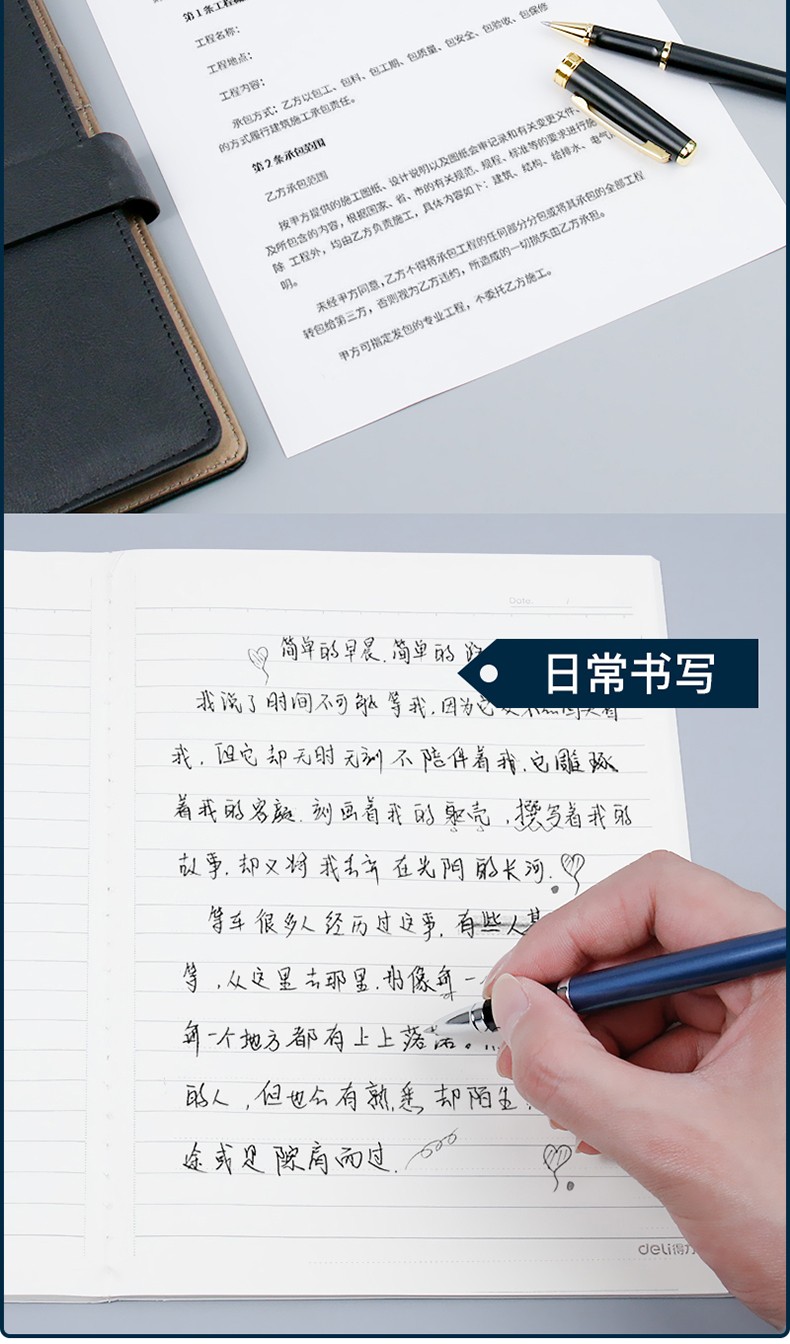 第1条工程
工程名称：
工程地点：
工程内容：
承包方式：乙方以包工、包料、包工期、包质量、包安全、包验收、包保修
的方式履行建筑施工承包责任。
第2条承包范围
乙方承包范围
按甲方提供的施工图纸、设计说明以及图纸会审记录和有关变更文件
及所包含的内容，根据国家、省、市的有关规范、规程、标准等的要求进行施
除 工程外，均由乙方负责施工，具体内容如下：建筑、结构、给排水、电气
叨。
未经甲方同意，乙方不得将承包工程的任何部分分包或将其承包的全部工程
转包给第三方，否则视为乙方违约，所造成的一切损失由乙方承担。
甲方可指定发包的专业工程，不委托乙方施工。
Date: /
简单的早晨.简单的
日常书写
我说了时间不可能等我.因为它
我.但它却无时无刻不陪伴着我.它雕琢
着我的容颜.刻画着我的躯壳，撰写着我的
故事.却又将我丢弃在光阴的长河.
等车很多人经历过这事.有些人
等，从这里去那里.好像每一
每一个地方都有上上落落。
的人，但也会有熟悉却陌生
途或是隙肩而过.
deli得力